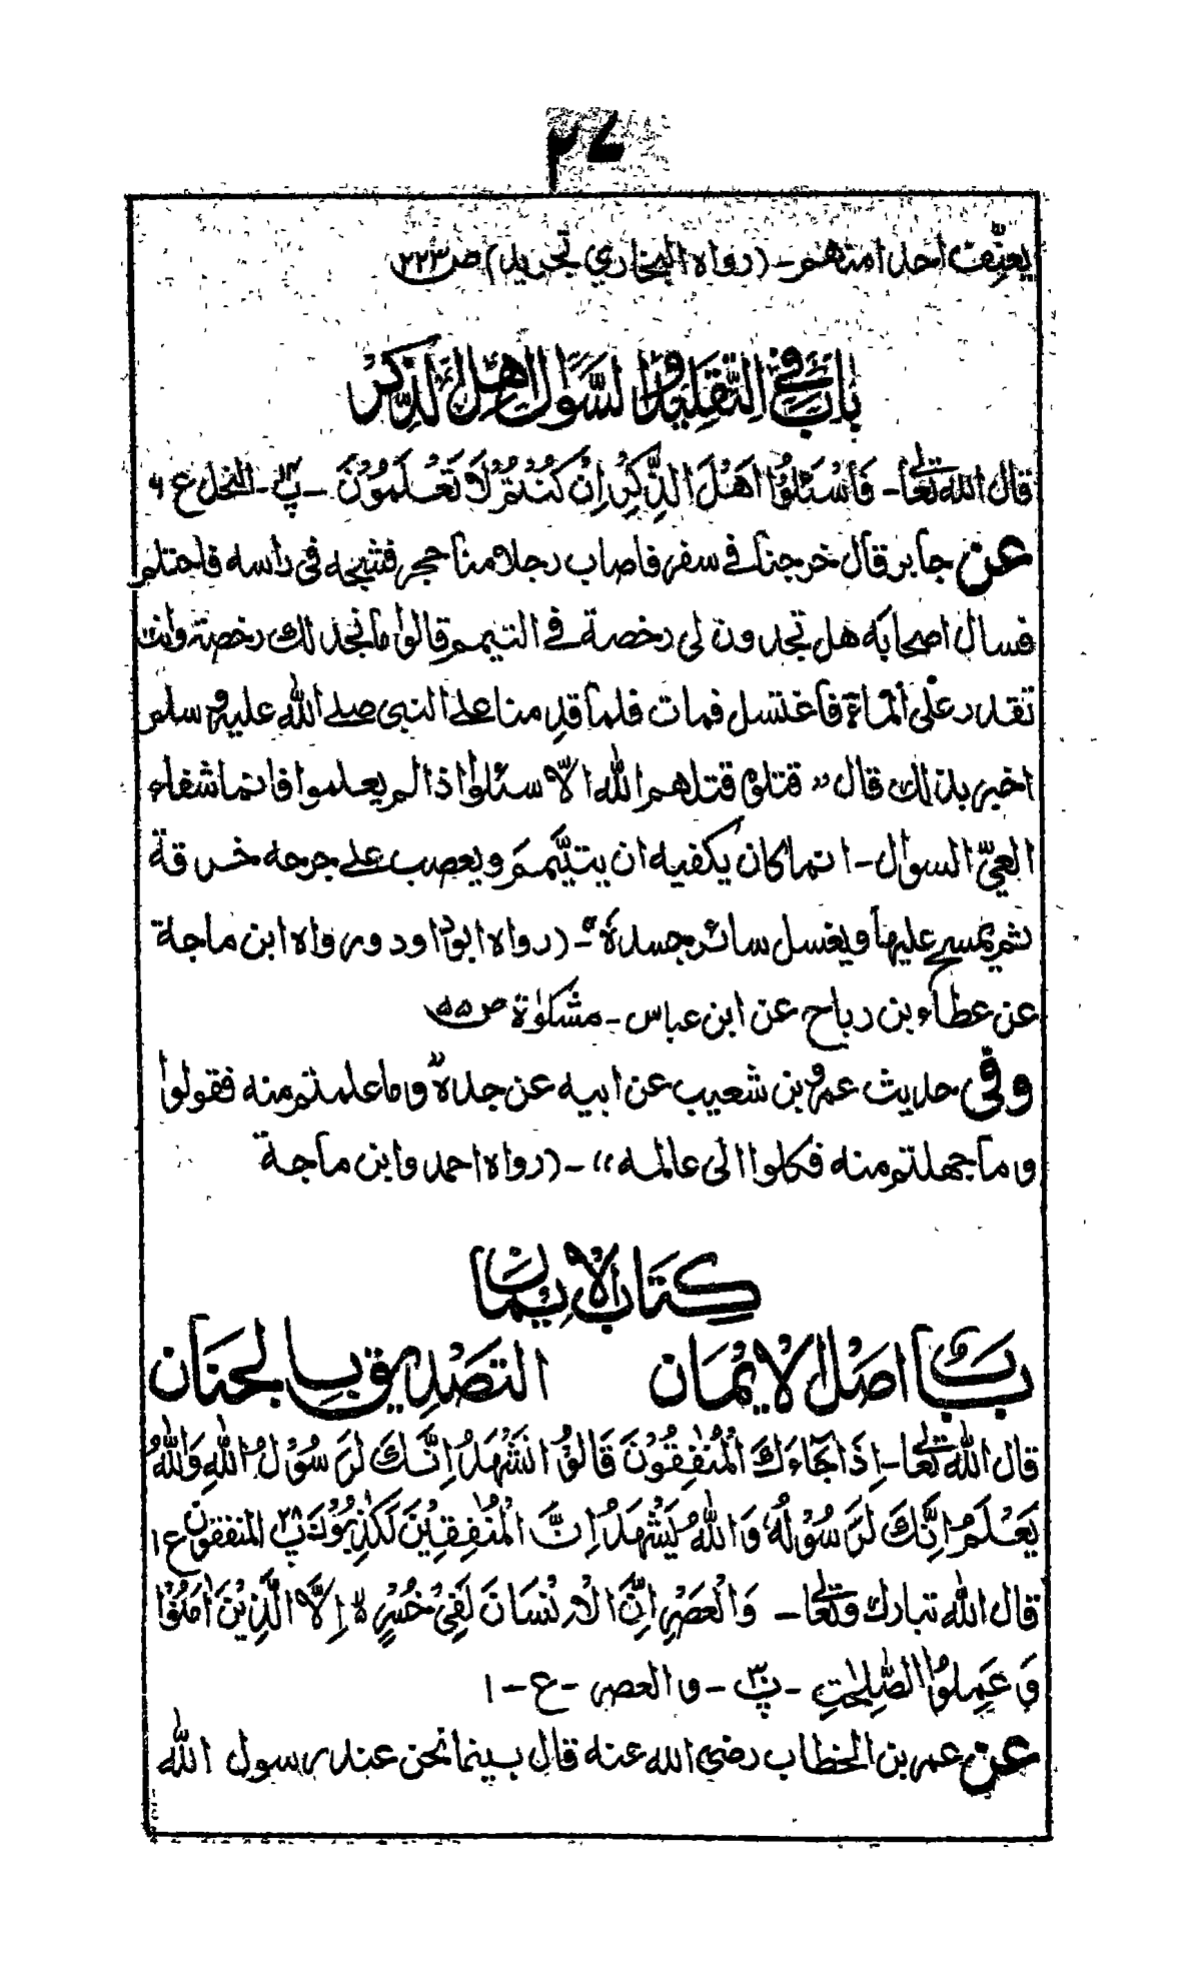 يعنّف احدا منهم ـ (رواه البخاري تجريد) ص٢٢٣
باب في التقليد والسؤال اهل الذكر
قال الله تعالى ـ فَاسْئَلُوْا اَهْلَ الذِّكْرِ اِنْ كُنْتُمْ لَا تَعْلَمُوْنَ ـ پ ـ النحل ع ٦
عن جابر قال خرجنا في سفر فاصاب رجلا منا حجر فشجه فى راسه فاحتلم
فسال اصحابه هل تجدون لى رخصة في التيمم قالوا ما نجد لك رخصة وانت
تقدر على الماء فاغتسل فمات فلما قدمنا على النبى صلے الله عليه وسلم
اخبر بذالك قال ” قتلوه قتلهم الله الا سئلوا اذا لم يعلموا فانما شفاء
العيّ السوال ـ انما كان يكفيه ان يتيَّممَ ويعصب على جرحه خرقة
ثم يمسح عليها ويغسل سائر جسده “ ـ (رواه ابوداود ورواه ابن ماجة
عن عطاء بن رباح عن ابن عباس ـ مشكوٰة ص ٥٥
وفى حديث عمرو بن شعيب عن ابيه عن جده ” وما علمتم منه فقولوا
وما جهلتم منه فكلوا الى عالمه “ ـ (رواه احمد وابن ماجة
كتاب الايمان
باب اصل الايمان التصديق بالجنان
قال الله تعالى ـ اِذَا جَآءَكَ الْمُنٰفِقُوْنَ قَالُوْا نَشْهَدُ اِنَّكَ لَرَسُوْلُ اللهِ وَاللهُ
يَعْلَمُ اِنَّكَ لَرَسُوْلُهٗ وَاللهُ يَشْهَدُ اِنَّ الْمُنٰفِقِيْنَ لَكٰذِبُوْنَ پ ٢٨ المنفقون ع ١
قال الله تبارك وتعالى ـ وَالْعَصْرِ اِنَّ الْاِنْسَانَ لَفِيْ خُسْرٍ ه اِلَّا الَّذِيْنَ اٰمَنُوْا
وَعَمِلُوا الصّٰلِحٰتِ ـ پ ٣٠ ـ والعصر ـ ع ـ ١
عن عمر بن الخطاب رضى الله عنه قال بينما نحن عند رسول الله